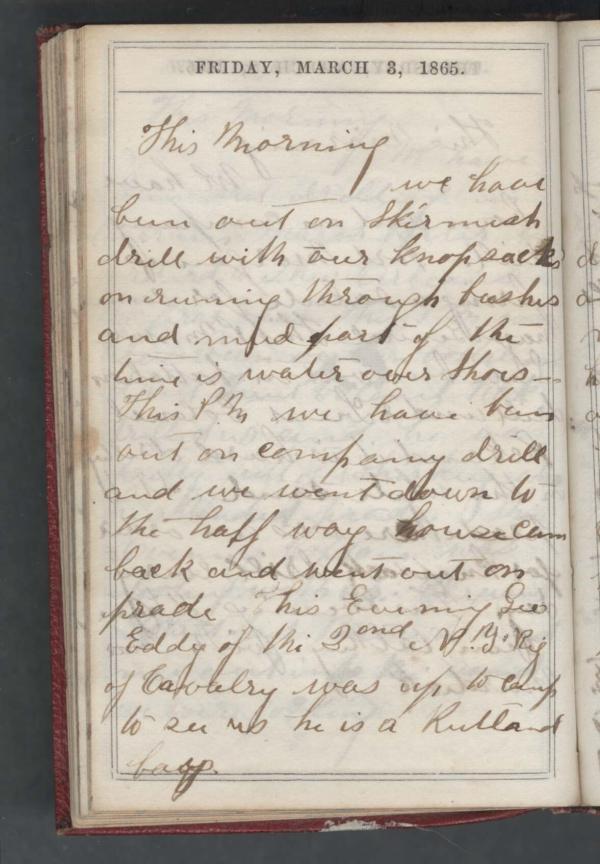 FRIDAY, MARCH 3, 1865.
This Morning
we have
bun out on Skirmish
drill with our knopsacks
on runing through bushes
and mud part of the
time is water over Shoes—
This P.M we have bun
out on company drill
and we went down to
the half way house cam
back and went out on
prade This Evening Geo
Eddy of the 2ond N.Y. Rig
of Cavalry was up to camp
to see us he is a Rutland
boy.